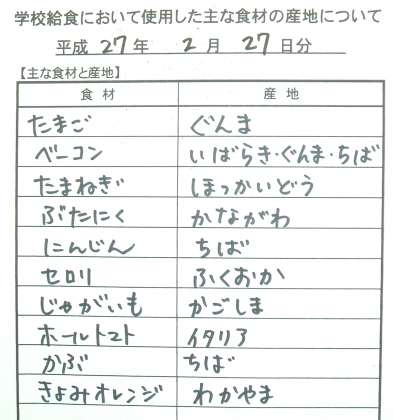 学校給食において使用した主な食材の産地について
平成 27 年 2 月 27 日分
【主な食材と産地】
食材 産地
たまご ぐんま
ベーコン いばらき・ぐんま・ちば
たまねぎ ほっかいどう
ぶたにく かながわ
にんじん ちば
セロリ ふくおか
じゃがいも かごしま
ホールトマト イタリア
かぶ ちば
きよみオレンジ わかやま